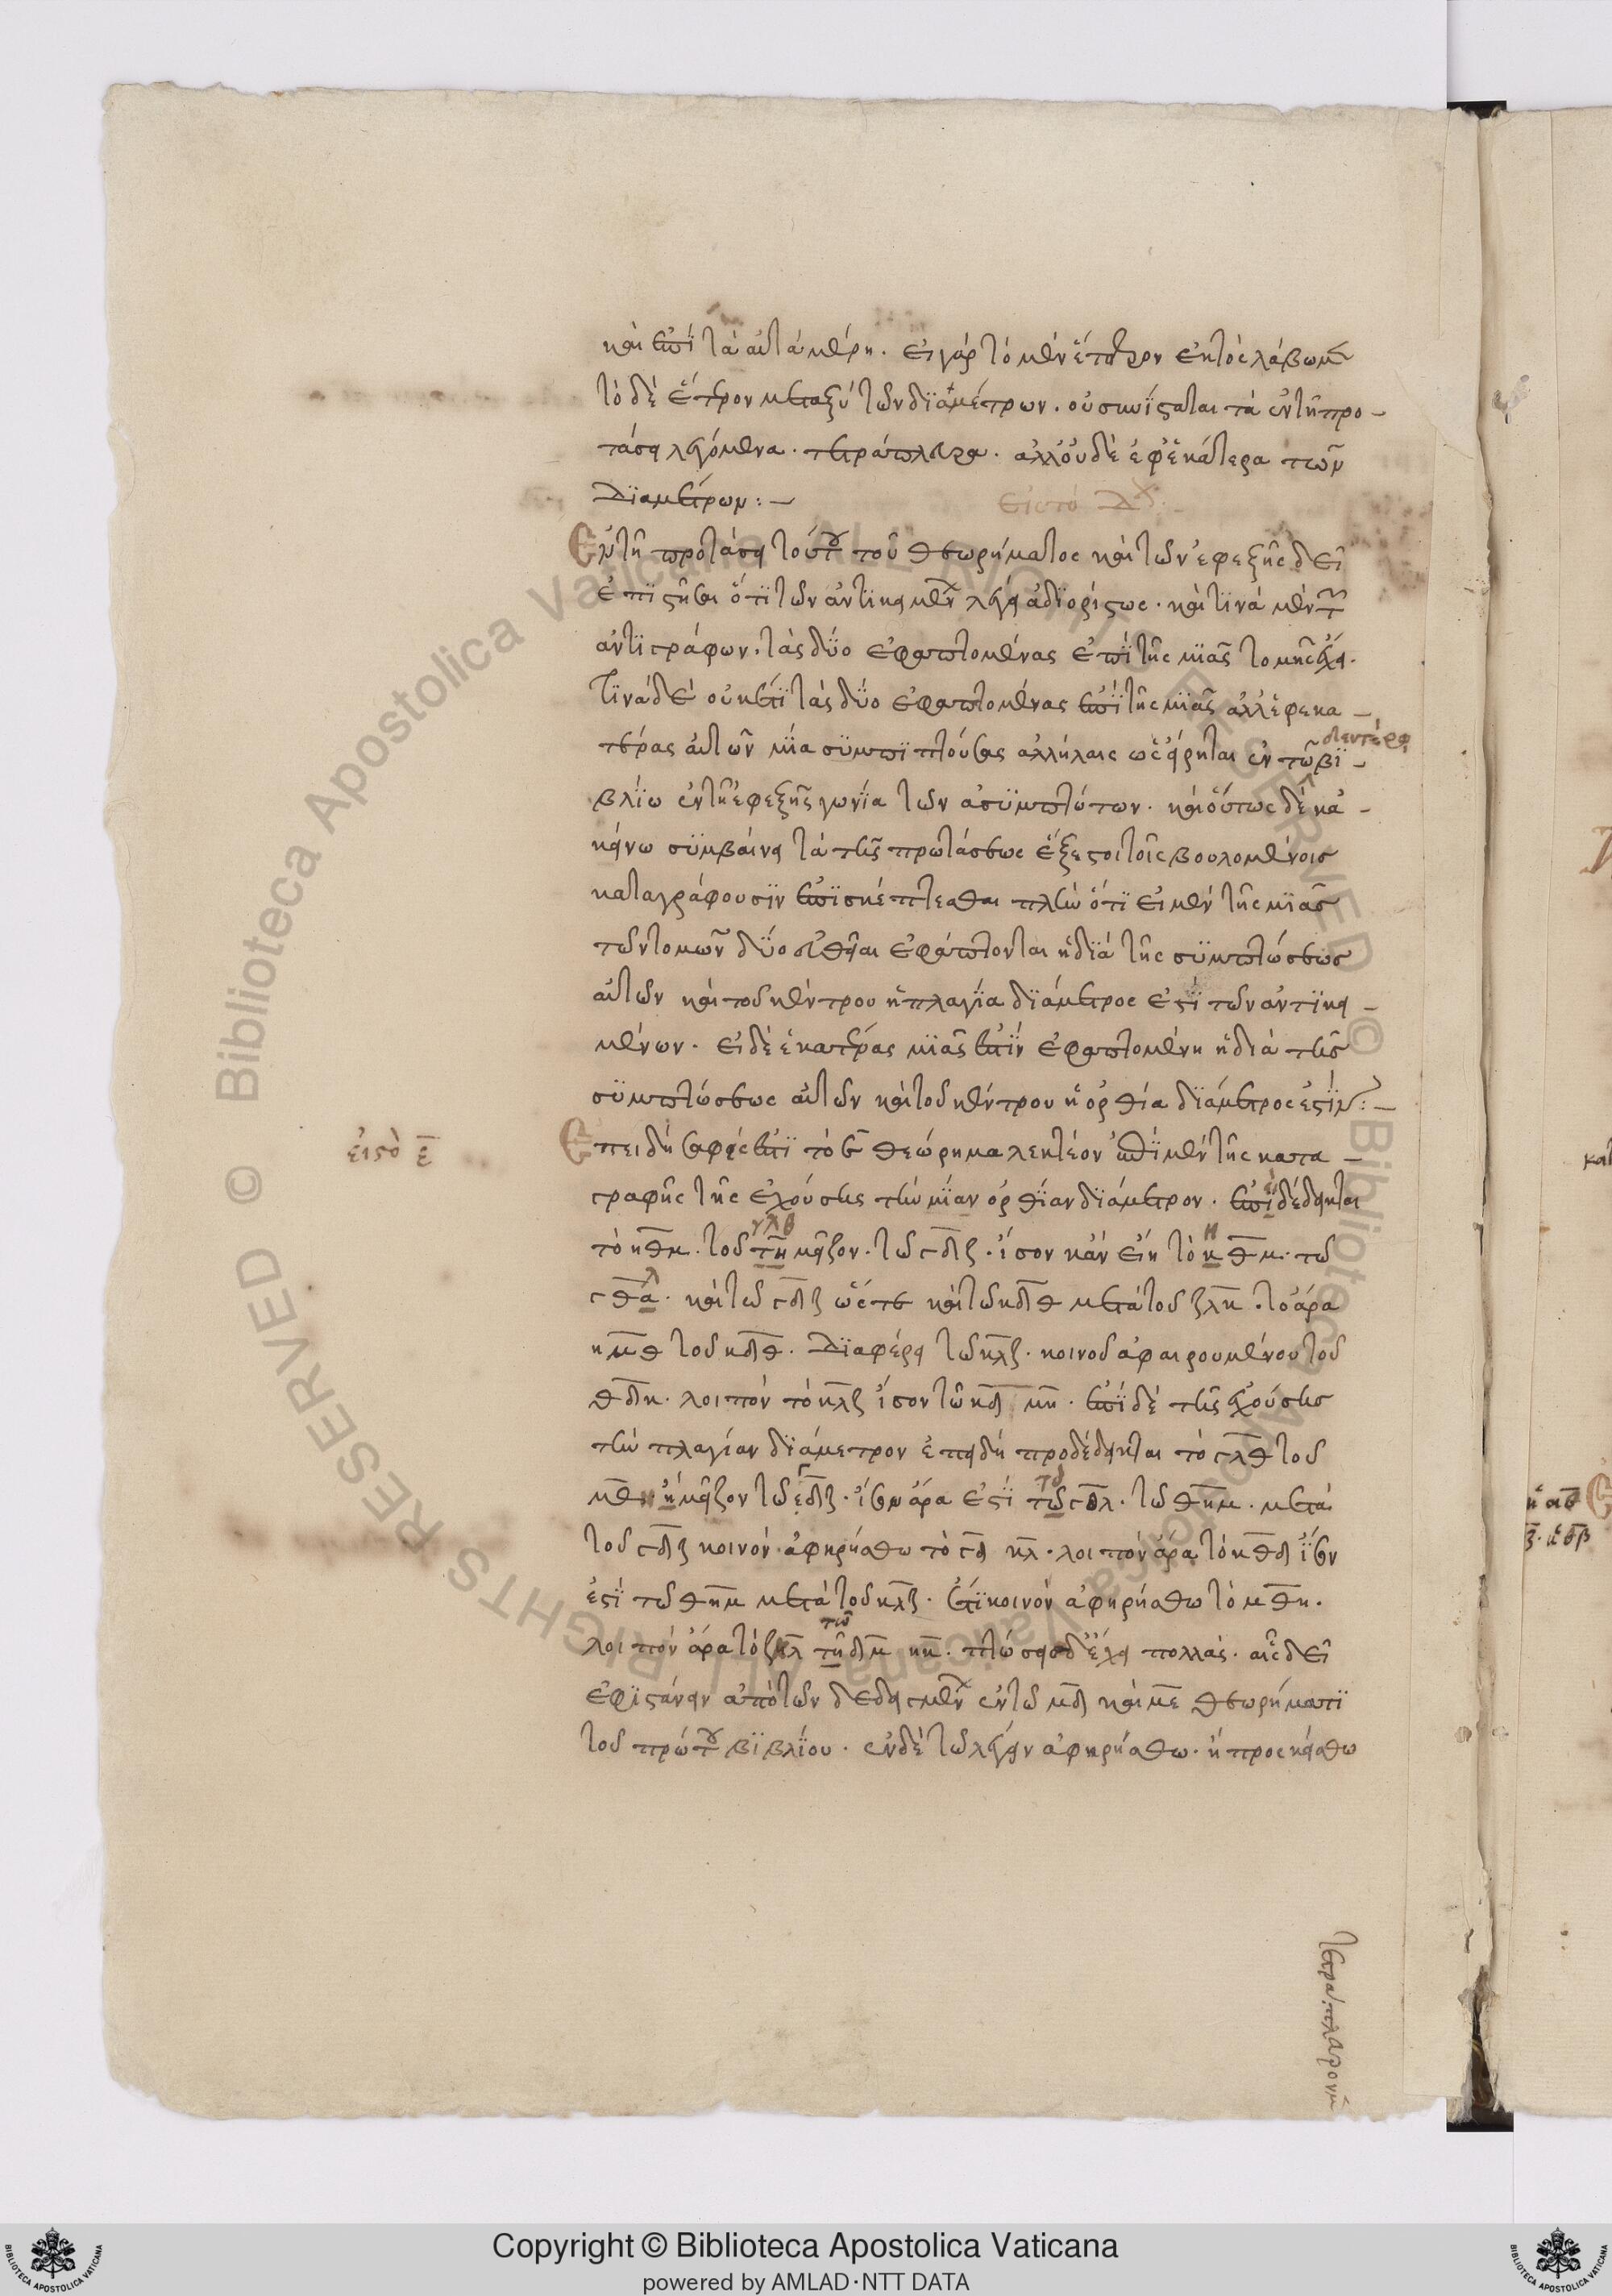 καὶ ἐπὶ τὰ αὐτὰ μέρη. εἰ γὰρ τὸ μὲν ἕτερον ἐκτὸς λάβωμεν
τὸ δὲ ἕτερον μεταξὺ τῶν διαμέτρων. οὐ συνίσταται τὰ ἐν τῇ προ-
τάσει λεγόμενα τετράπλευρα. ἀλλ' οὐδὲ ἐφ' ἑκάτερα τῶν
διαμέτρων:-
εἰς τὸ δ
Ἐν τῇ προτάσει τούτου τοῦ θεωρήματος καὶ τῶν ἐφεξῆς δεῖ
ἐπιστῆσαι ὅτι τῶν ἀντικειμένων λέγει ἀδιορίστως. καὶ τινὰ μὲν τῶν
ἀντιγράφων. τὰς δύο ἐφαπτομένας ἐπὶ τῆς μιᾶς τομῆς ἔχει.
τινὰ δὲ οὐκέτι τὰς δύο ἐφαπτομένας ἐπὶ τῆς μιᾶς ἀλλ' ἐφ' ἑκα-
δευτέρῳ
τέρας αὐτῶν μία συμπιπτούσας ἀλλήλαις ὡς εἴρηται ἐν τῷ βι-
βλίω ἐν τῇ ἐφεξῆς γωνία τῶν ἀσυμπτώτων. καὶ οὕτως δὲ κἀ-
κείνω συμβαίνει τὰ τῆς προτάσεως ἔξεστι τοῖς βουλομένοις
καταγράφουσιν ἐπισκέπτεσθαι πλὴν ὅτι εἰ μὲν τῆς μιᾶς
τῶν τομῶν δύο εὐθεῖαι ἐφάπτονται ἡ διὰ τῆς συμπτώσεως
αὐτῶν καὶ τοῦ κέντρου ἡ πλαγία διάμετρος ἐστὶ τῶν ἀντικει-
μένων. εἰ δὲ ἑκατέρας μιᾶς ἐστὶν ἐφαπτομένη ἡ διὰ τῆς
συμπτώσεως αὐτῶν καὶ τοῦ κέντρου ἡ ὀρθία διάμετρος ἐστὶν:-
εἰς τὸ ε
Ἐπειδὴ σαφές ἐστὶ τὸ ε θεώρημα λεκτέον ἐπὶ μὲν τῆς κατα-
γραφῆς τῆς ἐχούσης τὴν μίαν ὀρθίαν διάμετρον. ἐπεὶ δέδεικται
τὸ ηθμ. τοῦ μεῖζον. τῶ γδζ. ἴσον κἂν εἴη τὸ κθμ. τῶ
καὶ τῶ γδζ ὥστε καὶ τῶ κδθ μετὰ τοῦ ζλκ. τὸ ἄρα
κμθ τοῦ κδθ. διαφέρει τῶ κλζ. κοινοῦ ἀφαιρουμένου τοῦ
θδκ. λοιπὸν τὸ κλζ ἴσον τῷ κδ μη. ἐπὶ δὲ τῆς ἐχούσης
τὴν πλαγίαν διάμετρον ἐπειδὴ προδέδεικται τὸ γλθ τοῦ
μεῖζον τῶ ἴσον ἄρα ἐστὶ τῶ θημ. μετὰ
τοῦ γδζ κοινὸν ἀφηρήσθω τὸ γδ κλ. λοιπὸν ἄρα τὸ κθδ ἴσον
ἐστὶ τῶ θημ μετὰ τοῦ κλζ. ἔτι κοινὸν ἀφηρήσθω τὸ μθη.
τῶ
λοιπὸν ἄρα τὸ ζκλ τῇ δμ κη. πτώσεις δ' ἔχει πολλάς. αἷς δεῖ
ἐφιστάνειν ἀπὸ τῶν δεδειγμένων ἐν τῶ μδ καὶ με θεωρήματι
τοῦ πρώτου βιβλίου. ἐν δὲ τῶ λέγειν ἀφηρήσθω. ἢ προσκείσθω
Copyright © Biblioteca Apostolica Vaticana
powered by AMLAD·NTT DATA